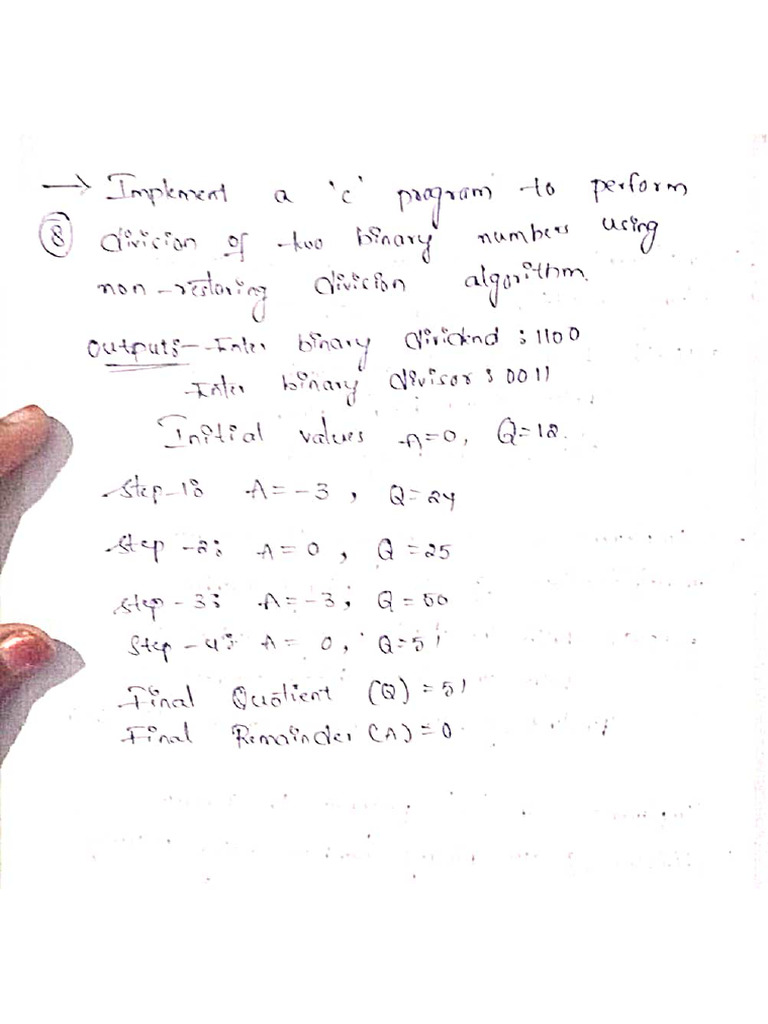 → Implement a 'c' program to perform
⑧ division of two binary numbers using
non-restoring division algorithm.
Outputs:- Enter binary dividend : 1100
Enter binary divisor : 0011
Initial values A=0, Q=12.
Step-1: A=-3, Q=24
Step-2: A=0, Q=25
Step-3: A=-3, Q=50
Step-4: A=0, Q=51
Final Quotient (Q) = 51
Final Remainder (A) = 0